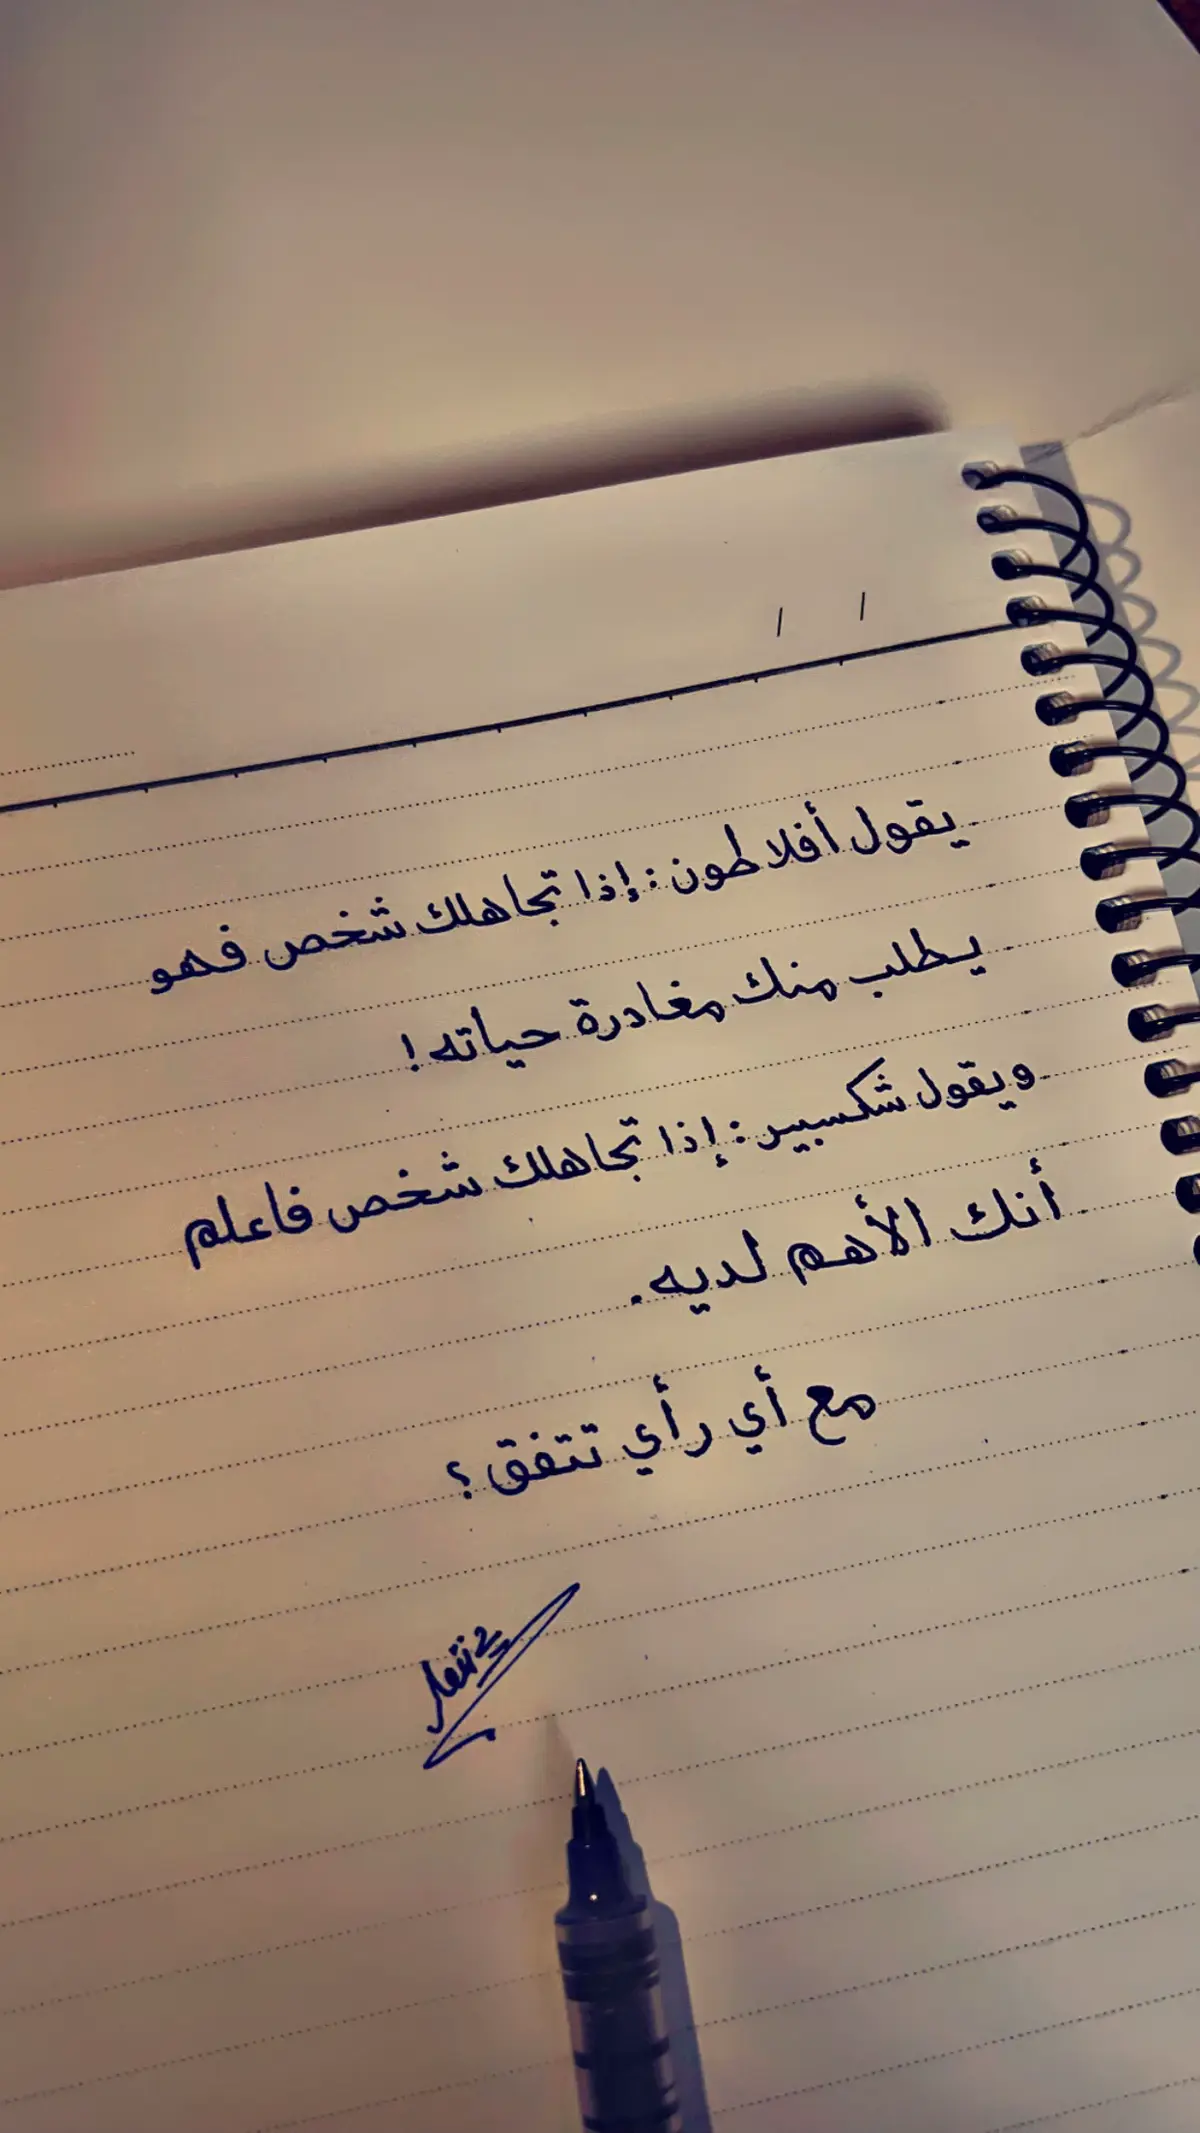 / /
يقول أفلاطون: إذا تجاهلك شخص فهو
يطلب منك مغادرة حياته!
ويقول شكسبير: إذا تجاهلك شخص فاعلم
أنك الأهم لديه.
مع أي رأي تتفق؟